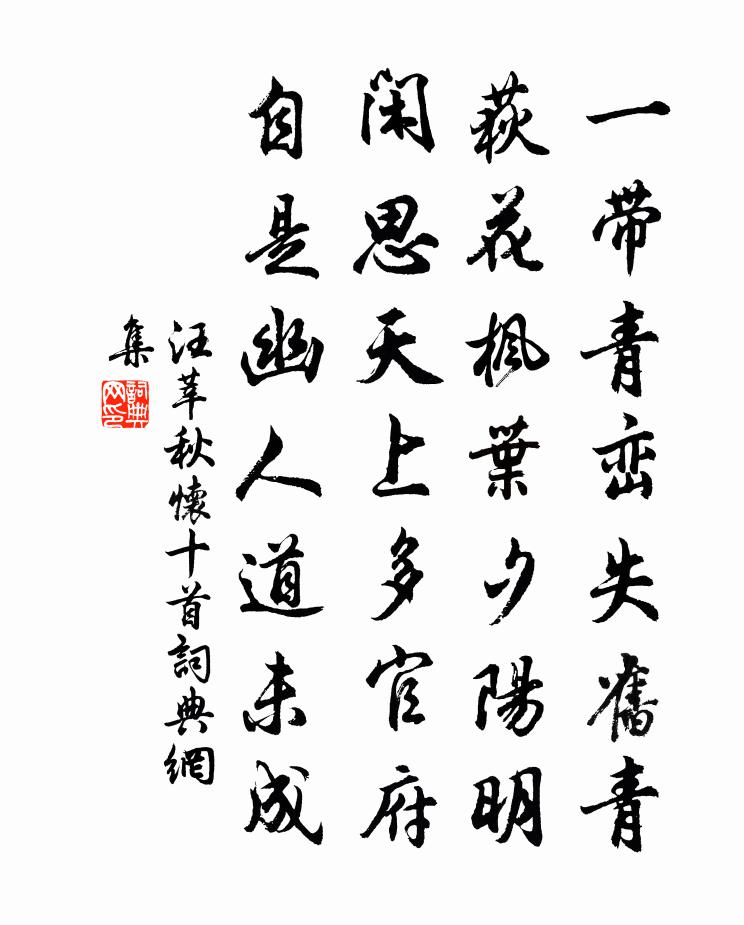 一带青峦失舊青
荻花楓葉夕陽明
闲思天上多官府
自是幽人道未成
汪莘秋懷十首詞典網
集
詞典
网印